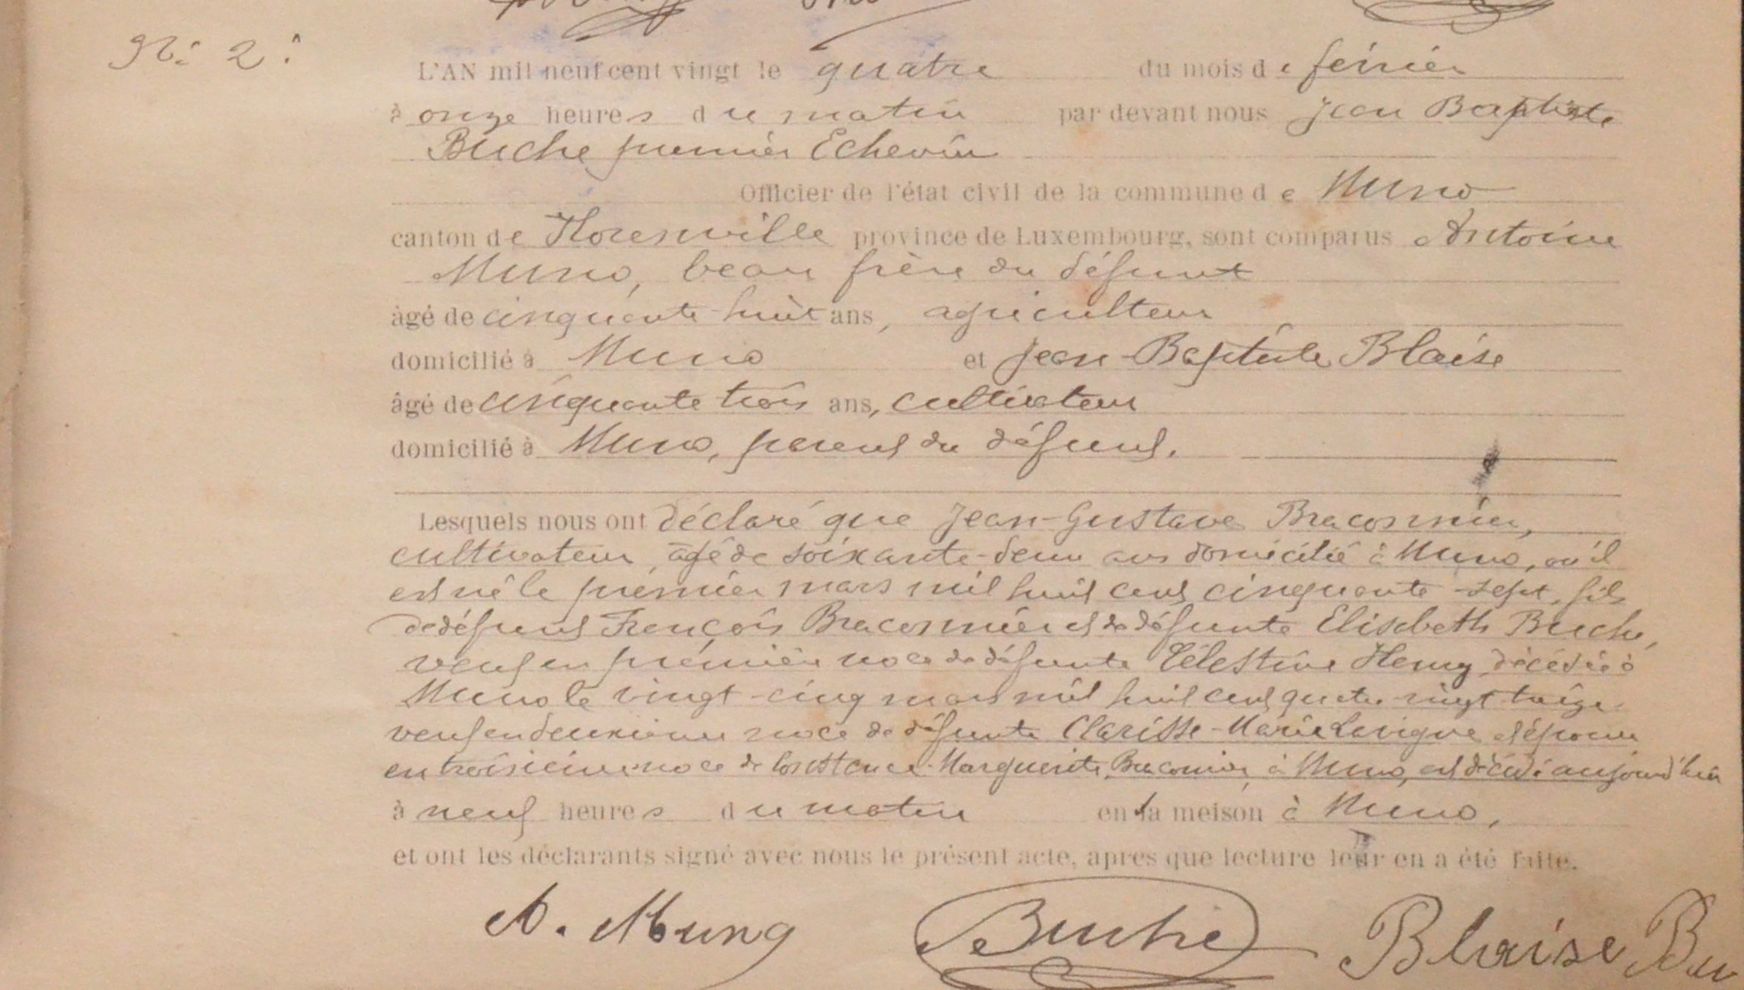 N°: 2:
L'AN mil neuf cent vingt le quatre du mois de février
à onze heures du matin par devant nous Jean Baptiste
Buche premier Echevin
Officier de l'état civil de la commune de Muno
canton de Florenville province de Luxembourg, sont comparus Antoine
Muno, beau frère du défunt
âgé de cinquante huit ans, agriculteur
domicilié à Muno et Jean-Baptiste Blaise
âgé de cinquante trois ans, cultivateur
domicilié à Muno, parent du défunt.
Lesquels nous ont déclaré que Jean-Gustave Braconnier,
cultivateur, âgé de soixante-deux ans domicilié à Muno, où il
est né le premier mars mil huit cent cinquante-sept, fils
de défunt François Braconnier et de défunte Elisabeth Buche,
veuf en première noce de défunte Célestine Henry, décédée à
Muno le vingt-cinq mars mil huit cent quatre-vingt-treize
veuf en deuxième noce de défunte Clarisse-Marie Lavigne et époux
en troisième noce de Constance-Marguerite Braconnier, à Muno, est décédé aujourd'hui
à neuf heures du matin en la maison à Muno,
et ont les déclarants signé avec nous le présent acte, après que lecture leur en a été faite.
A. Muno Buche Blaise